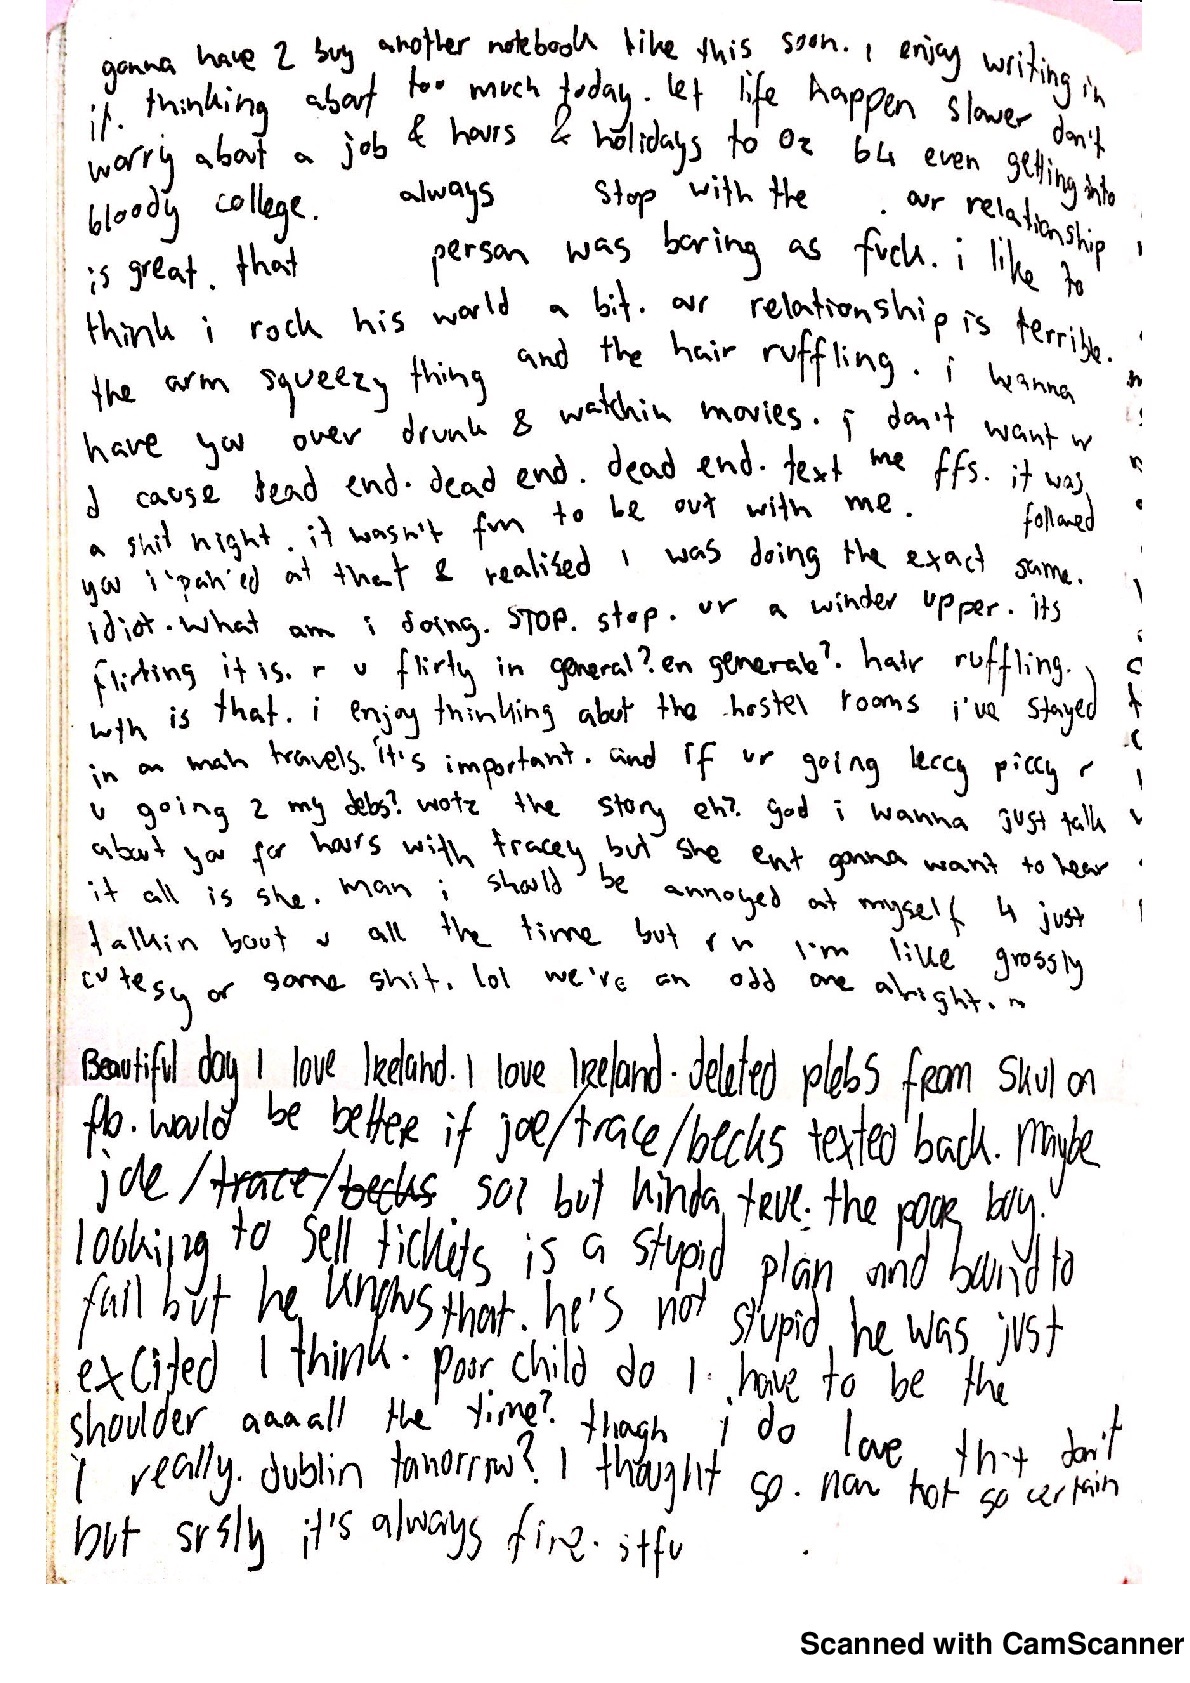 gonna have 2 buy another notebook like this soon. i enjoy writing in
it. thinking about too much today. let life happen slower don't
worry about a job & hours & holidays to oz b4 even getting into
bloody college. always stop with the . our relationship
is great. that person was boring as fuck. i like to
think i rock his world a bit. our relationship is terrible.
the arm squeezy thing and the hair ruffling. i wanna
have you over drunk & watchin movies. i don't want u
d cause dead end. dead end. dead end. text me ffs. it was
a shit night. it wasn't fun to be out with me. followed
you i 'pah'ed at that & realised i was doing the exact same.
idiot. what am i doing. STOP. stop. ur a winder upper. its
flirting it is. r u flirty in general? en generale?. hair ruffling.
wth is that. i enjoy thinking about the hostel rooms i've stayed
in on mah travels. it's important. and if ur going leccy piccy r
u going 2 my debs? wotz the story eh? god i wanna just talk
about you for hours with tracey but she ent gonna want to hear
it all is she. man i should be annoyed at myself 4 just
talkin bout u all the time but r n i'm like grossly
cutesy or some shit. lol we're an odd one alright.
Beautiful day I love Ireland. I love Ireland. deleted plebs from skul on
fb. would be better if joe/trace/becks texted back. maybe
joe/trace/becks soz but kinda true. the poor boy.
looking to sell tickets is a stupid plan and bound to
fail but he knows that. he's not stupid he was just
excited I think. poor child do I have to be the
shoulder aaaall the time?. though i do love that don't
I really. dublin tomorrow? I thought so. now not so certain
but srsly it's always fine. stfu .
Scanned with CamScanner